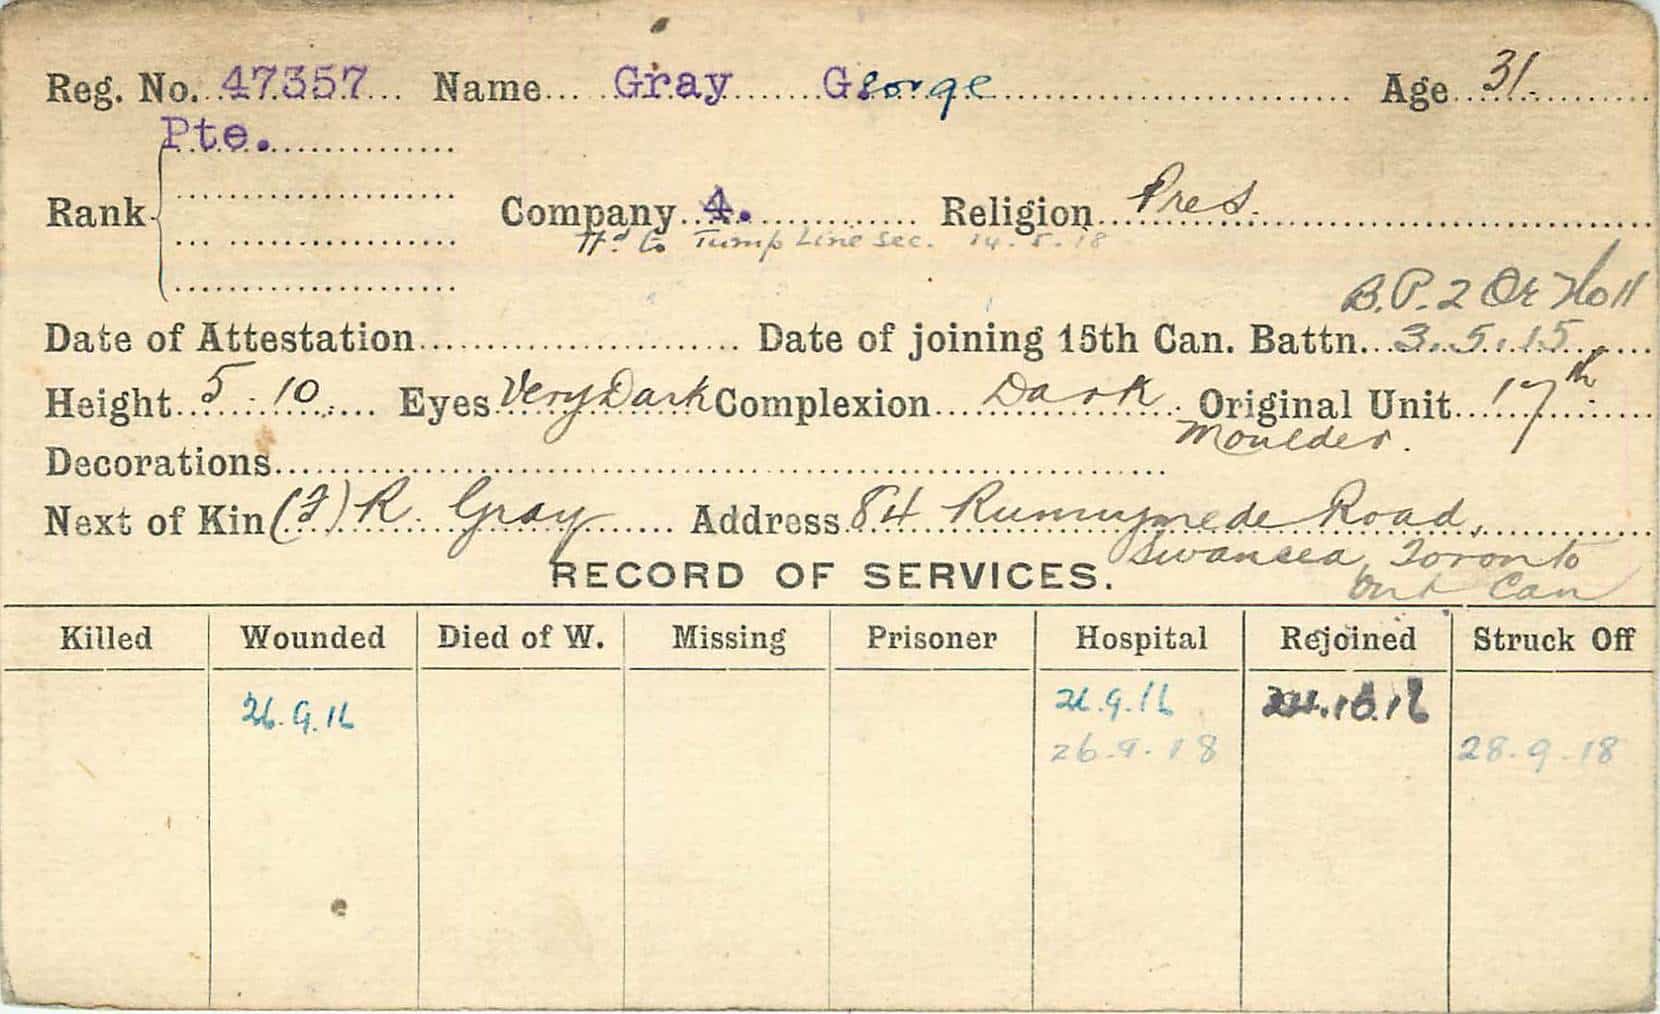 Reg. No. 47357 Name Gray George Age 31.
Pte.
Rank Company 4. Religion Pres.
to Tump Line Sec. 14.5.18
B.P. 2
Date of Attestation Date of joining 15th Can. Battn. 3.5.15
Height 5 10 Eyes Very Dark Complexion Dark Original Unit 17th
Moulder.
Decorations
Next of Kin (F) R. Gray Address 84 Runnymede Road,
Swansea, Toronto
Ont Can
RECORD OF SERVICES.
Killed Wounded Died of W. Missing Prisoner Hospital Rejoined Struck Off
26.9.16 26.9.16
26.9.18 28.9.18